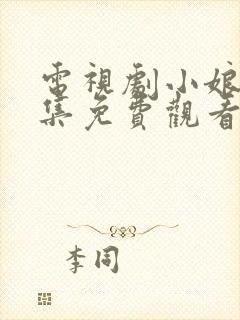 電視劇小娘
集免費觀看
李同